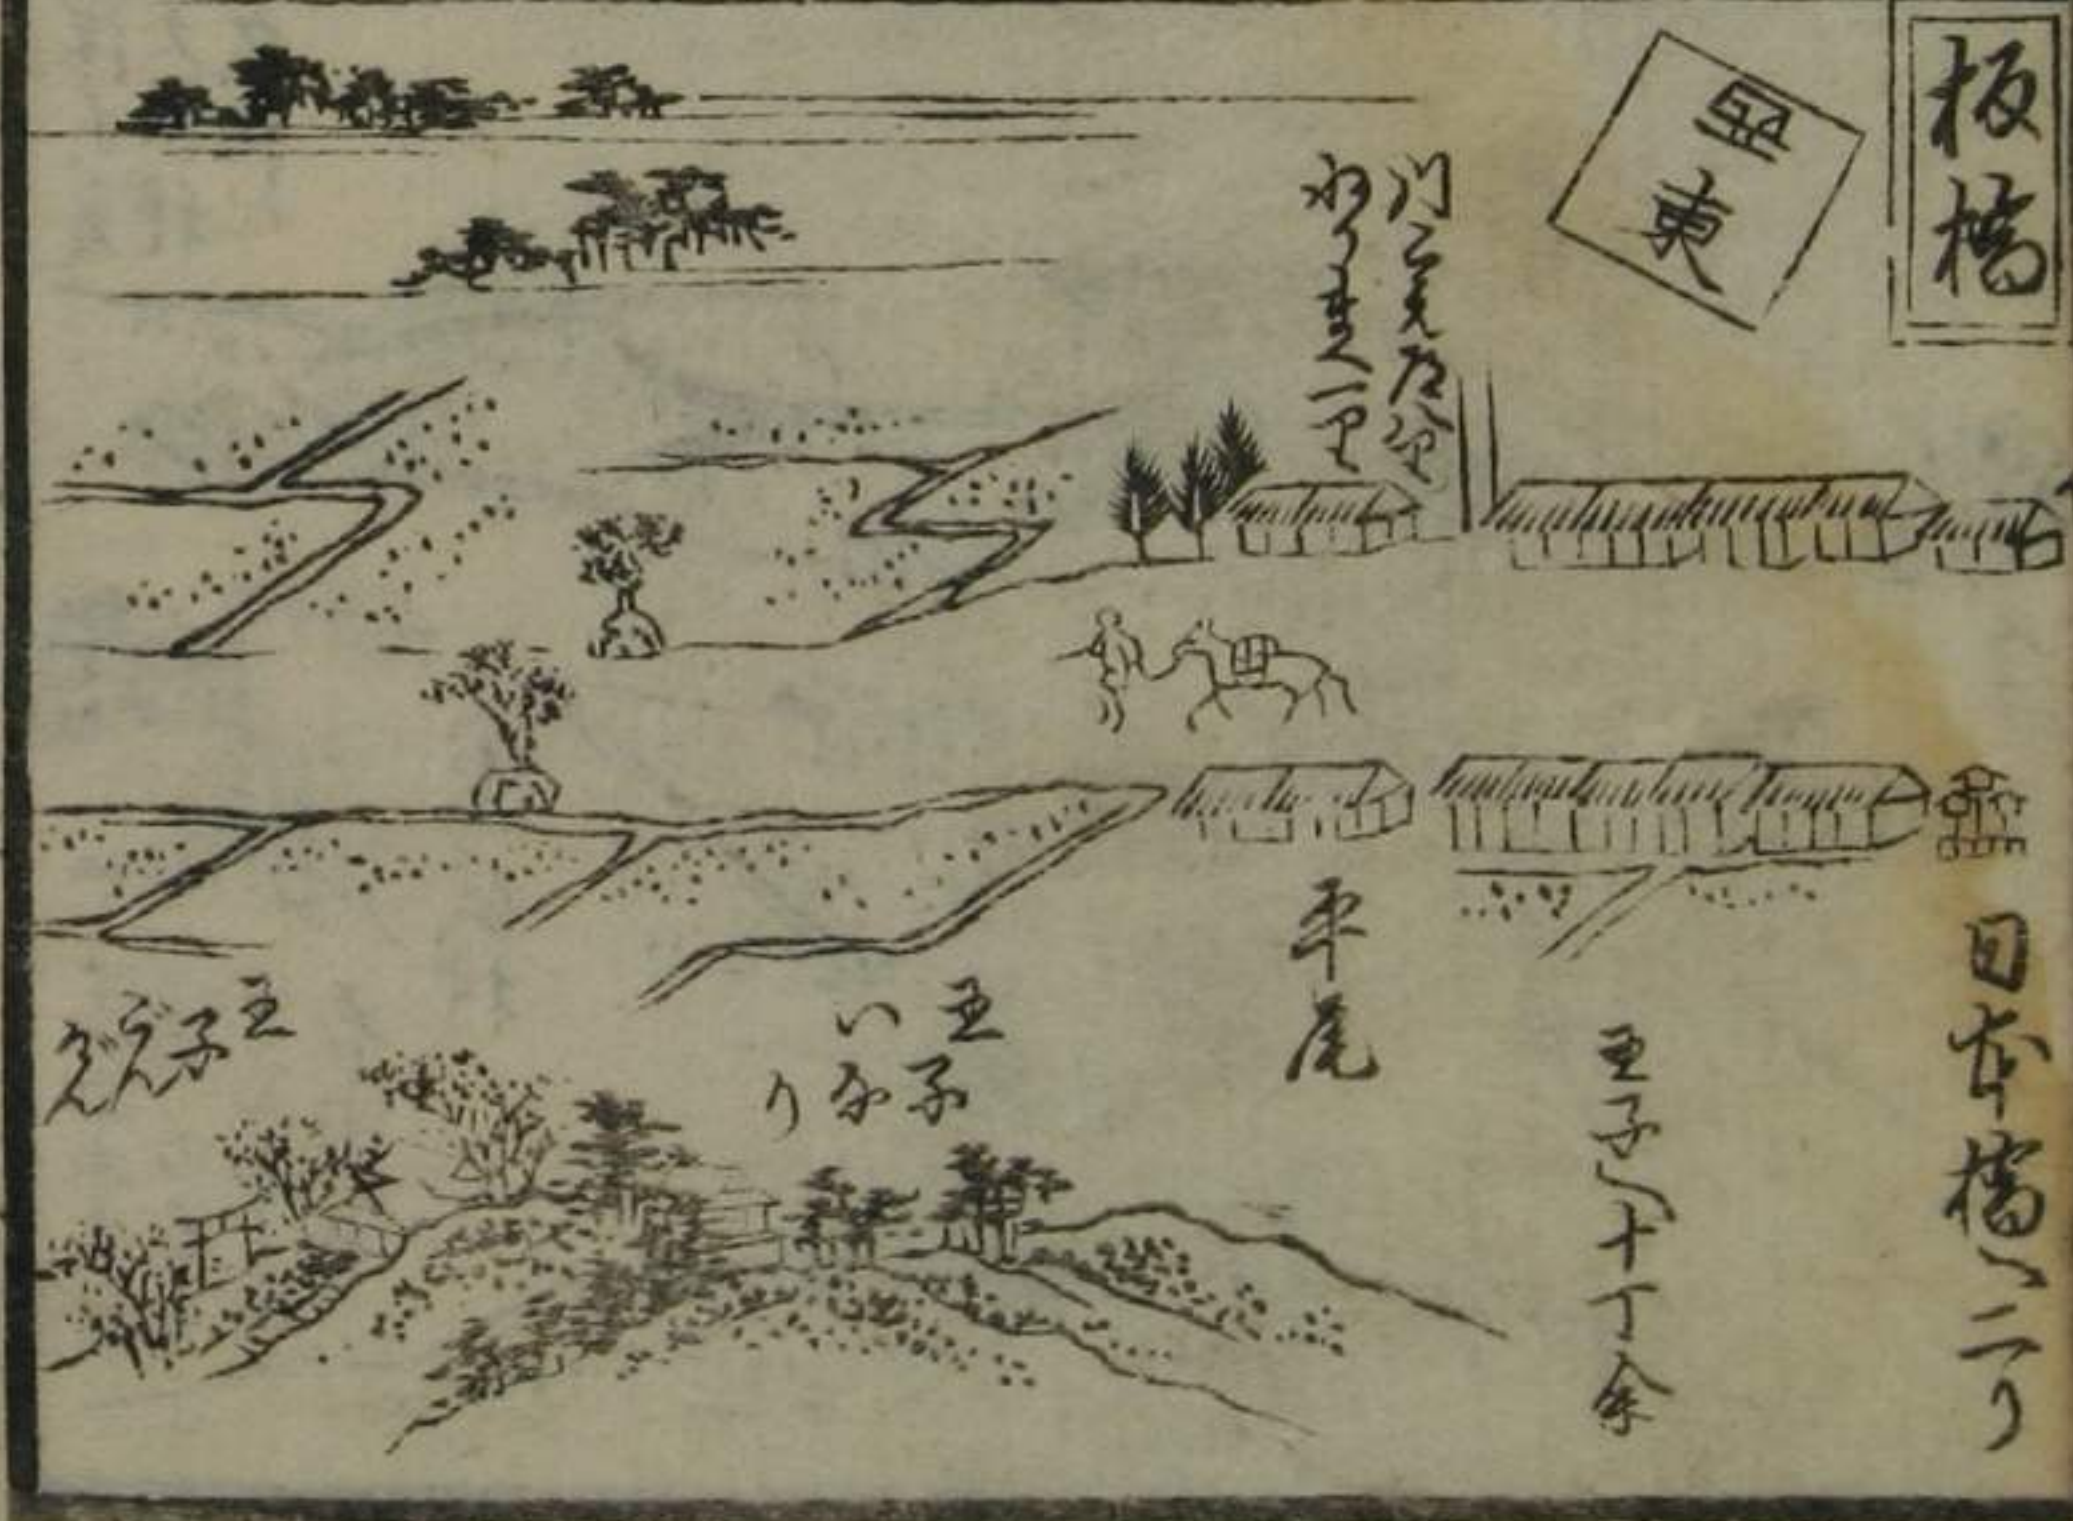 板橋
東
川ごえ道
ねりまへ一里
日本橋へ二り
王子へ十丁余
平尾
王子
いな
り
王
子
ごん
げん